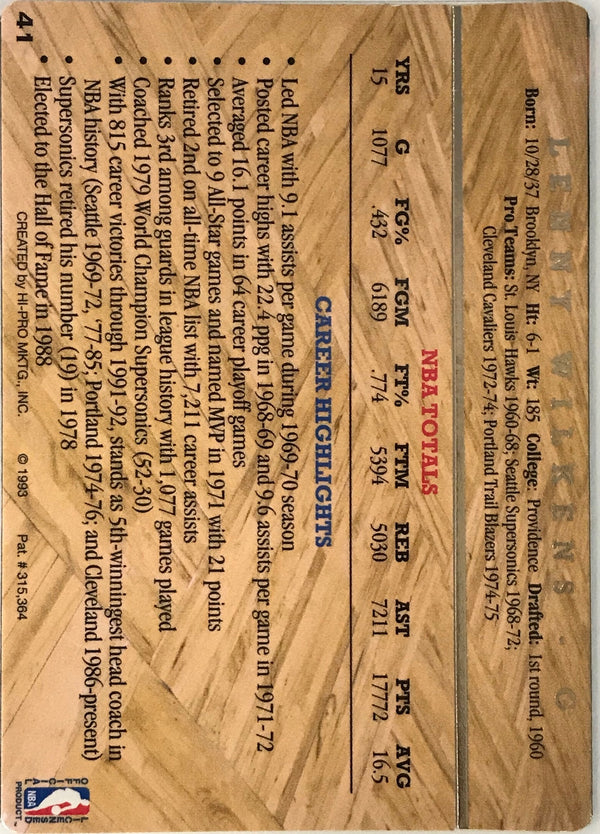 LENNY WILKENS · G
Born: 10/28/37 Brooklyn, NY Ht: 6-1 Wt: 185 College: Providence Drafted: 1st round, 1960
Pro Teams: St. Louis Hawks 1960-68; Seattle Supersonics 1968-72;
Cleveland Cavaliers 1972-74; Portland Trail Blazers 1974-75
NBA TOTALS
YRS G FG% FGM FT% FTM REB AST PTS AVG
15 1077 .432 6189 .774 5394 5030 7211 17772 16.5
CAREER HIGHLIGHTS
• Led NBA with 9.1 assists per game during 1969-70 season
• Posted career highs with 22.4 ppg in 1968-69 and 9.6 assists per game in 1971-72
• Averaged 16.1 points in 64 career playoff games
• Selected to 9 All-Star games and named MVP in 1971 with 21 points
• Retired 2nd on all-time NBA list with 7,211 career assists
• Ranks 3rd among guards in league history with 1,077 games played
• Coached 1979 World Champion Supersonics (52-30)
• With 815 career victories through 1991-92, stands as 5th-winningest head coach in
NBA history (Seattle 1969-72, '77-85; Portland 1974-76; and Cleveland 1986-present)
• Supersonics retired his number (19) in 1978
• Elected to the Hall of Fame in 1988
41
CREATED by HI-PRO MKTG., INC. © 1993 Pat. # 315,364
OFFICIAL
LICENSED
NBA
PRODUCT